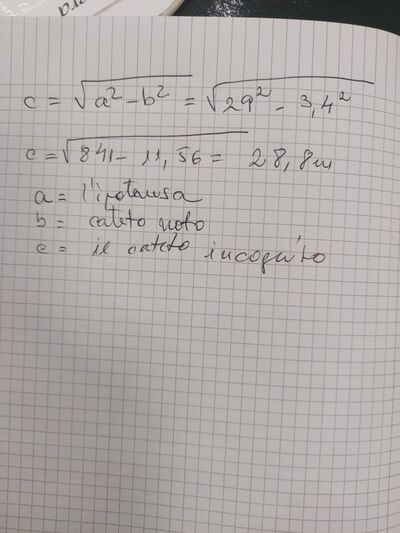 c = √a² - b² = √29² - 3,4²
c = √841 - 11,56 = 28,8m
a = l'ipotenusa
b = cateto noto
c = il cateto incognito